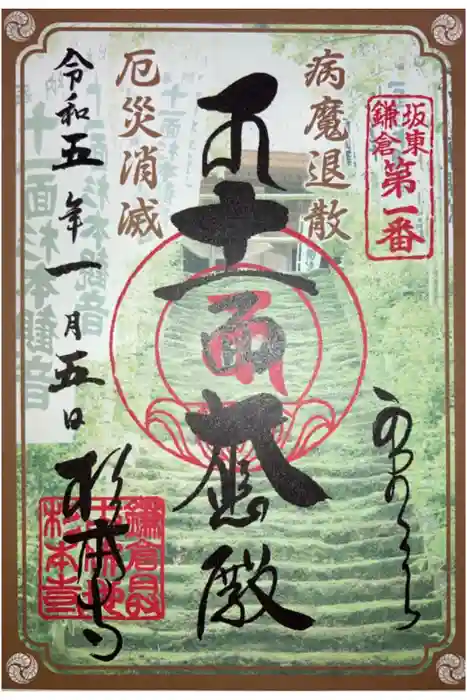 坂東
鎌倉
第一番
病魔退散
十一面
大悲殿
厄災消滅
令和五年一月五日
杉本寺
鎌倉最
杉本寺
十一面杉本観音
十一面杉本観音